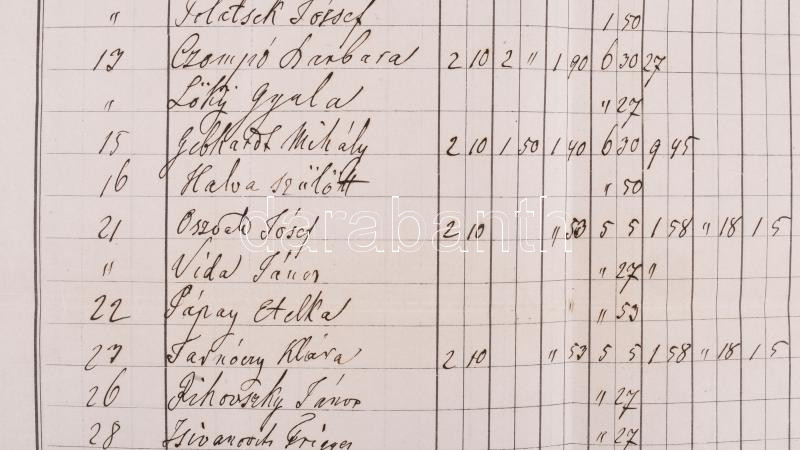 " Polatsek József 1 50
13 Czompó Barbara 2 10 2 " 1 90 6 30 27
" Löky Gyula " 27
15 Gebhardt Mihály 2 10 1 50 1 40 6 30 9 45
16 Halva szülött " 50
21 József 2 10 " 53 5 5 1 58 " 18 1 5
" Vida János " 27 "
22 Pápay Etelka " 53
23 Tarnóczy Klára 2 10 " 53 5 5 1 58 " 18 1 5
26 Rihovszky János " 27
28 " 27
darabanth